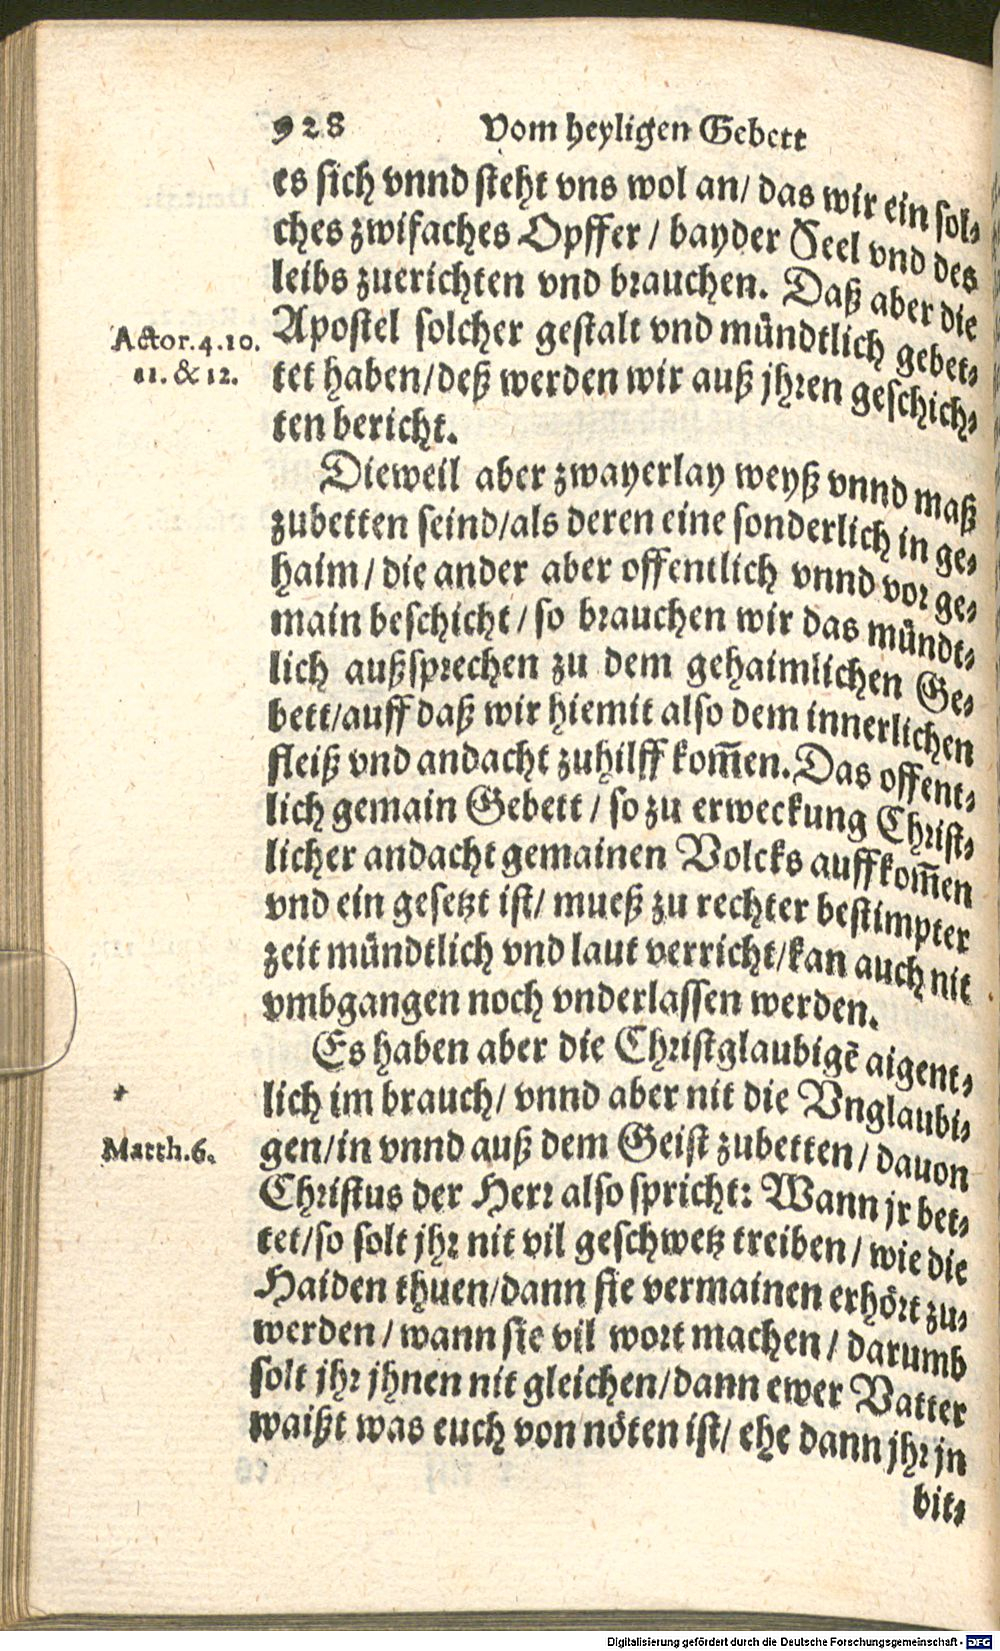 928 Vom heyligen Gebett
es sich vnnd steht vns wol an/ das wir ein sol⸗
ches zwifaches Opffer / bayder Seel vnd des
leibs zuerichten vnd brauchen. Daß aber die
Apostel solcher gestalt vnd mündtlich gebet⸗
Actor.4.10.
11. & 12.
tet haben/deß werden wir auß jhren geschich⸗
ten bericht.
Dieweil aber zwayerlay weyß vnnd maß
zubetten seind/als deren eine sonderlich in ge⸗
haim / die ander aber offentlich vnnd vor ge⸗
main beschicht / so brauchen wir das mündt⸗
lich außsprechen zu dem gehaimlichen Ge⸗
bett/auff daß wir hiemit also dem innerlichen
fleiß vnd andacht zuhilff kom̄en. Das offent⸗
lich gemain Gebett / so zu erweckung Christ⸗
licher andacht gemainen Volcks auffkom̄en
vnd ein gesetzt ist/ mueß zu rechter bestimpter
zeit mündtlich vnd laut verricht/kan auch nit
vmbgangen noch vnderlassen werden.
Es haben aber die Christglaubigē aigent⸗
lich im brauch/ vnnd aber nit die Vnglaubi⸗
Matth.6.
gen/in vnnd auß dem Geist zubetten / dauon
Christus der Herr also spricht: Wann jr bet⸗
tet/so solt jhr nit vil geschwetz treiben / wie die
Haiden thuen/dann sie vermainen erhört zu⸗
werden / wann sie vil wort machen / darumb
solt jhr jhnen nit gleichen/dann ewer Vatter
waißt was euch von nöten ist/ ehe dann jhr jn
bit⸗
Digitalisierung gefördert durch die Deutsche Forschungsgemeinschaft - DFG